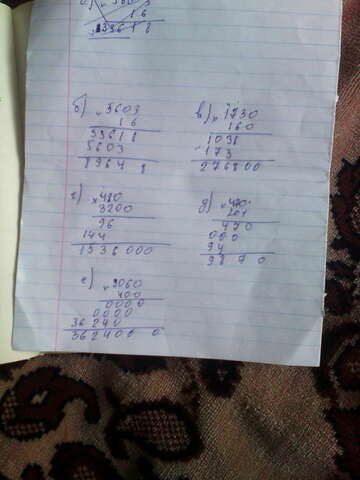 б) × 5603
16
33618
5603
89648
в) × 1730
160
1038
173
276800
г) × 480
3200
96
144
1536000
д) × 470
201
470
000
94
9870
е) × 9060
400
0000
0000
36240
3624000